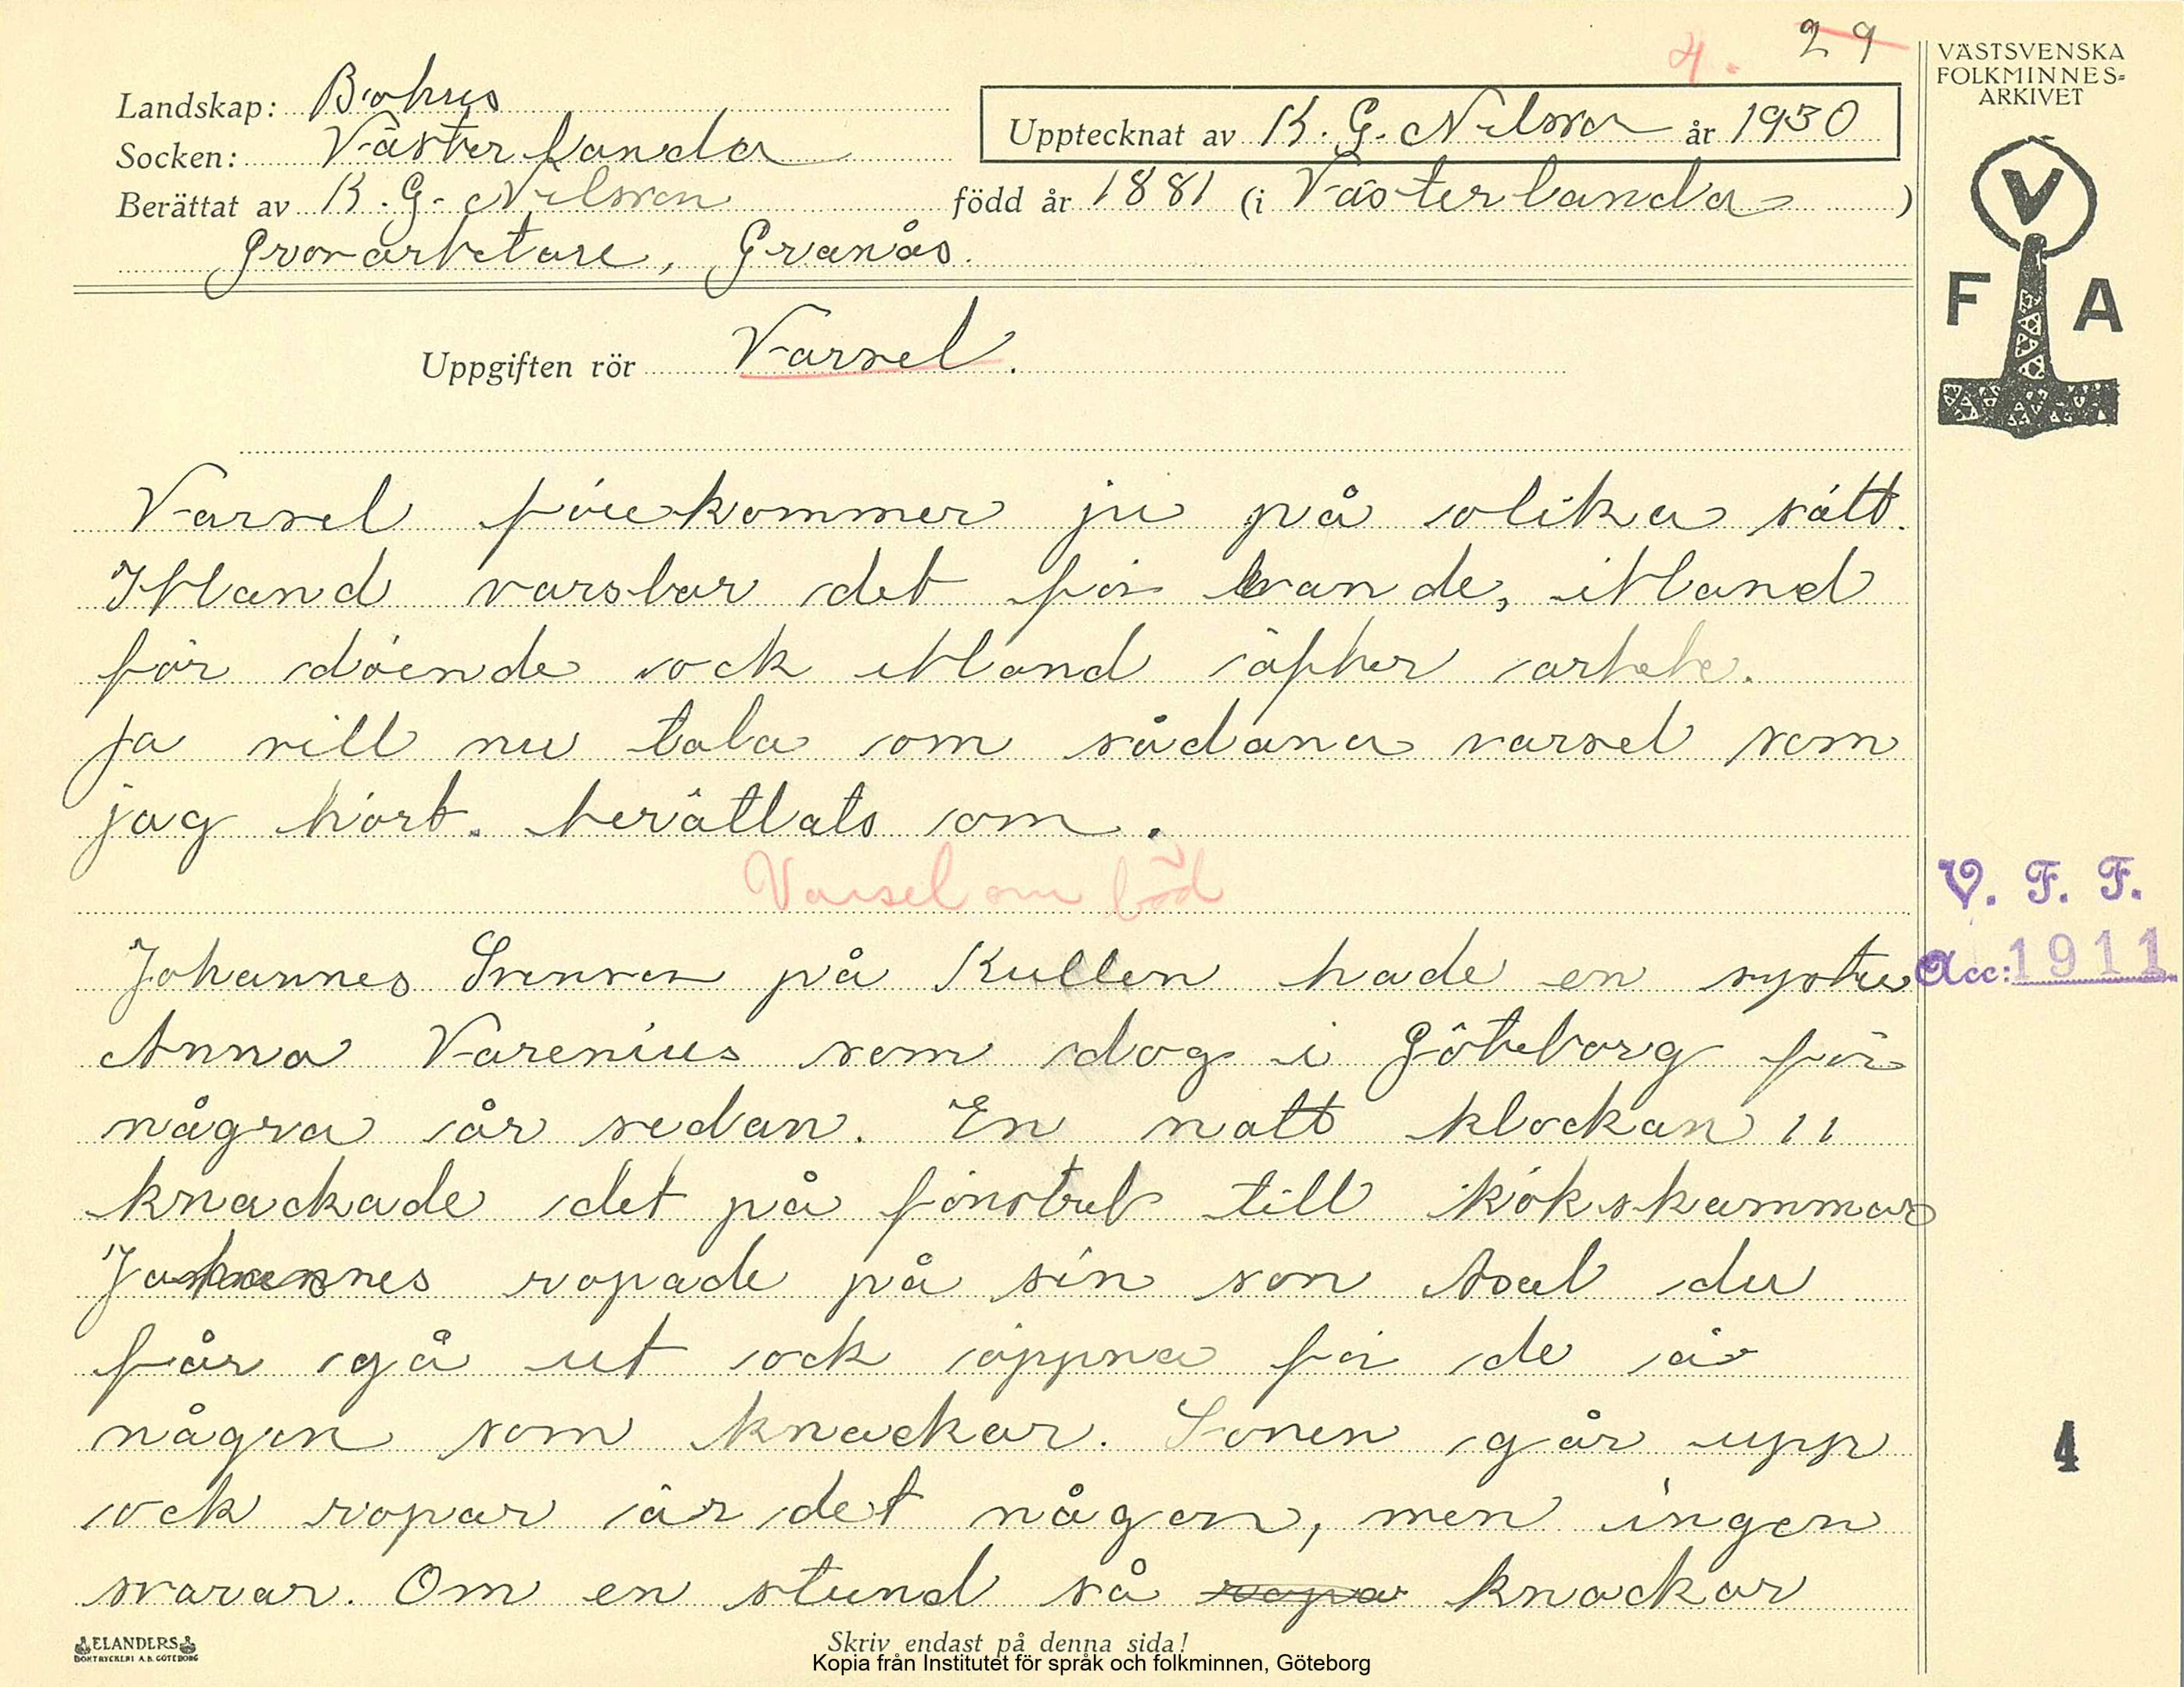 4. 29
VÄSTSVENSKA
FOLKMINNES-
ARKIVET
Landskap: Bohus
Upptecknat av K. G. Nilsson år 1930
Socken: Västerlanda
Berättat av K. G. Nilsson född år 1881 (i Västerlanda )
Grovarbetare, Granås.
V
F A
Uppgiften rör Varsel.
Varsel förekommer ju på olika sått.
Ibland varslar det för levande, ibland
för döende ock ibland äpter arbete.
Ja vill nu tala om sådana varsel som
jag hört. berättats om.
Varsel om död
Johannes Svensson på Kullen hade en syster
Anna Varenius som dog i Göteborg för
några år sedan. En natt klockan 11
knackade det på fönstret till kökskammar
Johannes ropade på sin son Axel du
får gå ut ock öppna för de är
någon som knackar. Sonen går upp
ock ropar är det någon, men ingen
svarar. Om en stund så ropa knackar
V. F. F.
Acc: 1911
4
ELANDERS
BOKTRYCKERI A.B. GÖTEBORG
Skriv endast på denna sida!
Kopia från Institutet för språk och folkminnen, Göteborg